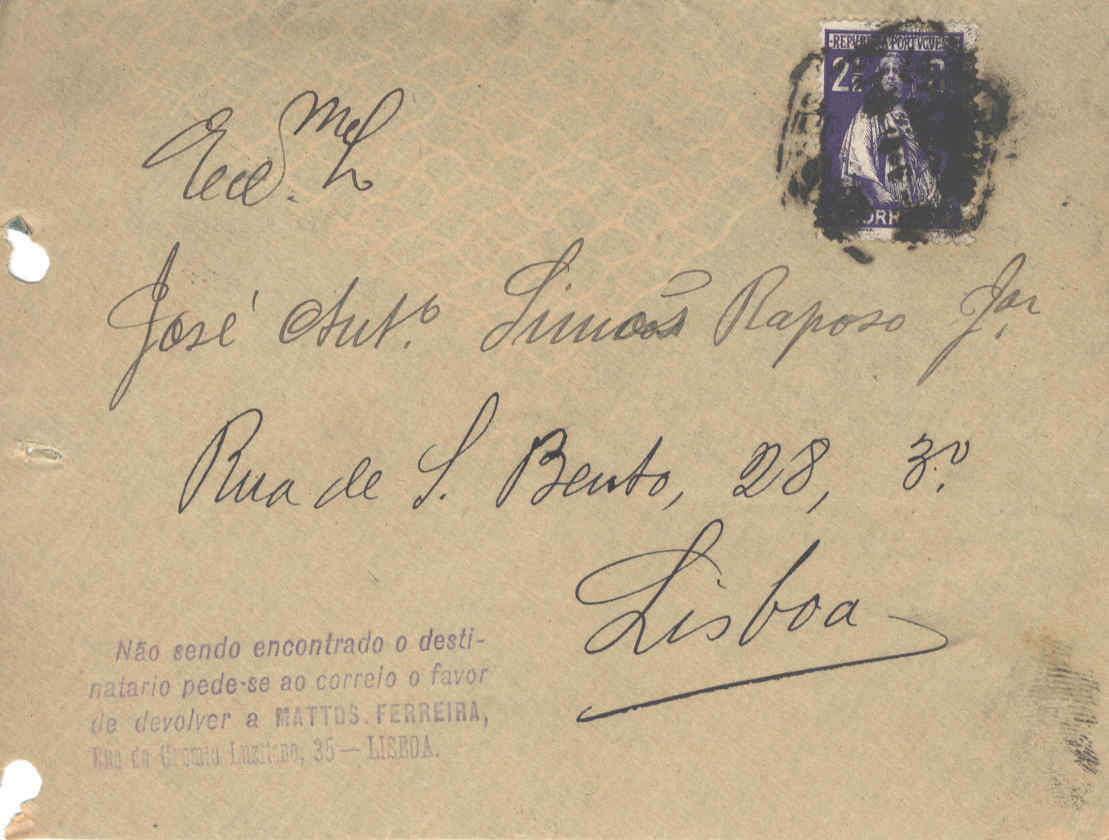 REPUBLICA PORTVGUESA
2½
CORREIO
José Ant.º Simões Raposo J.or
Rua de S. Bento, 28, 3.º
Lisboa
Não sendo encontrado o desti-
natario pede-se ao correio o favor
de devolver a MATTOS FERREIRA,
Rua do Gremio Luzitano, 35 — LISBOA.